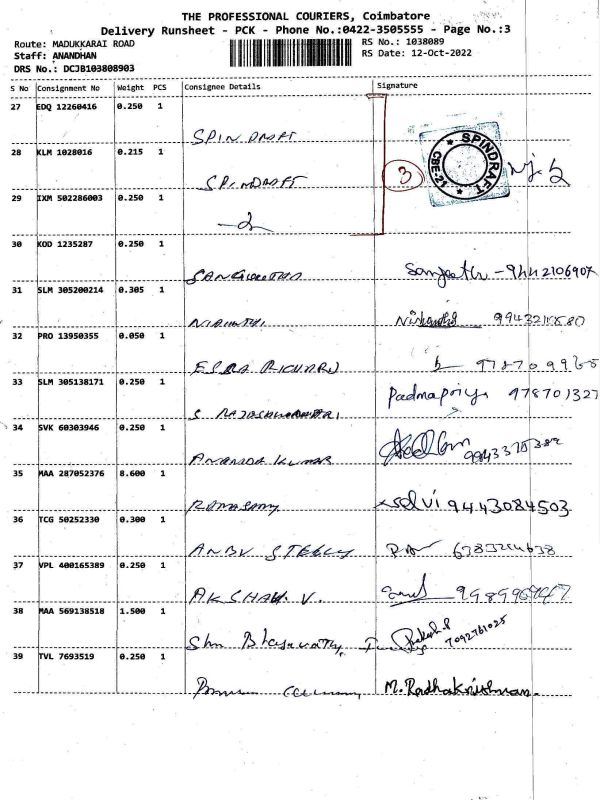 THE PROFESSIONAL COURIERS, Coimbatore
Delivery Runsheet - PCK - Phone No.:0422-3505555 - Page No.:3
Route: MADUKKARAI ROAD
RS No.: 1038089
Staff: ANANDHAN
RS Date: 12-Oct-2022
DRS No.: DCJB103808903
S No Consignment No Weight PCS Consignee Details Signature
27 EDQ 12260416 0.250 1
SPIN DRAFT
28 KLM 1028016 0.215 1
SPINDRAFT
3
SPINDRAFT CBE-21
29 IXM 502286003 0.250 1
30 KOD 1235287 0.250 1
Sangeetha - 9442106907
31 SLM 305200214 0.305 1
32 PRO 13950355 0.050 1
33 SLM 305138171 0.250 1
Padmapriya 978701327
34 SVK 60303946 0.250 1
ANANDA KUMAR
35 MAA 287052376 8.600 1
RAMASAMY selvi 9443084503
36 TCG 50252330 0.300 1
ANBU STEELS
37 VPL 400165389 0.250 1
AKSHAY. V.
38 MAA 569138518 1.500 1
Shri Bhagavathy
Prakash.P
7092761025
39 TVL 7693519 0.250 1
M. Radhakrishnan.